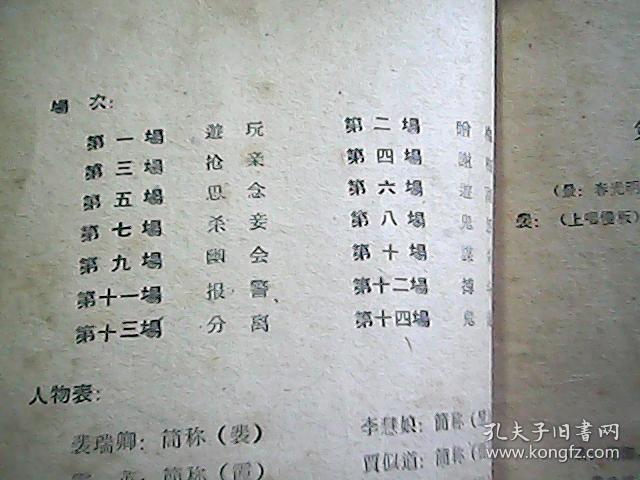 場 次：
第一場 遊玩 第二場
第三場 抢亲 第四場
第五場 思念 第六場
第七場 杀妾 第八場 鬼
第九場 幽会 第十場
第十一場 报警 第十二場
第十三場 分离 第十四場 鬼
人物表：
裴瑞卿：简称（裴） 李慧娘：简称
简称（霞） 贾似道：简称
（景：春光明
裴：（上唱慢板）
孔夫子旧书网
www.kongfz.com